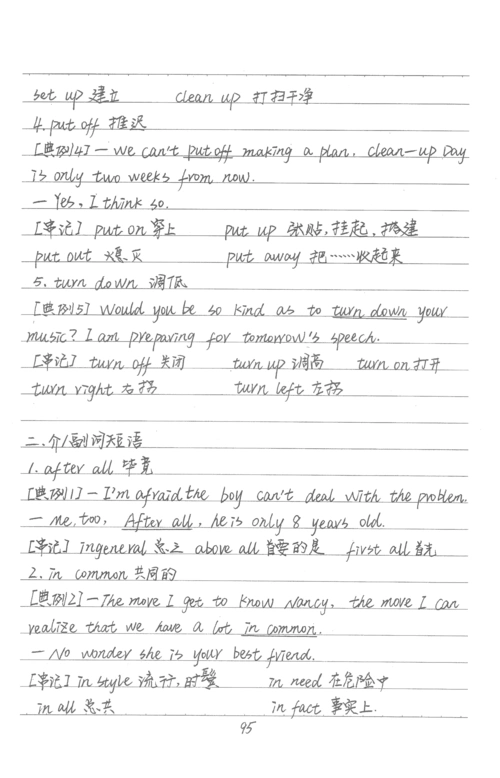 set up 建立 clean up 打扫干净
4. put off 推迟
[典例4] — We can't put off making a plan. Clean-up Day
is only two weeks from now.
— Yes, I think so.
[串记] put on 穿上 put up 张贴,挂起,搭建
put out 熄灭 put away 把……收起来
5. turn down 调低
[典例5] Would you be so kind as to turn down your
music? I am preparing for tomorrow's speech.
[串记] turn off 关闭 turn up 调高 turn on 打开
turn right 右拐 turn left 左拐
二. 介/副词短语
1. after all 毕竟
[典例1] — I'm afraid the boy can't deal with the problem.
— Me, too, After all, he is only 8 years old.
[串记] in general 总之 above all 首要的是 first all 首先
2. in common 共同的
[典例2] — The move I get to know Nancy, the move I can
realize that we have a lot in common.
— No wonder she is your best friend.
[串记] in style 流行,时髦 in need 在危险中
in all 总共 in fact 事实上.
95